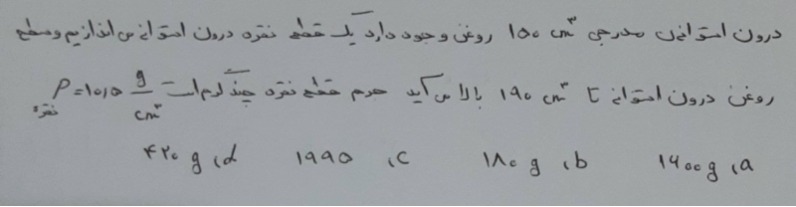 درون استوانه‌ی مدرجی ۱۵۰ cm³ روغن وجود دارد یک قطعه نقره درون استوانه می‌اندازیم و سطح
روغن درون استوانه تا ۱۹۰ cm³ بالا می‌آید جرم قطعه نقره چند گرم است ρ نقره = ۱۰٫۵ g/cm³
a) ۱۹۰۰ g b) ۱۸۰ g c) ۱۹۹۵ d) ۴۲۰ g